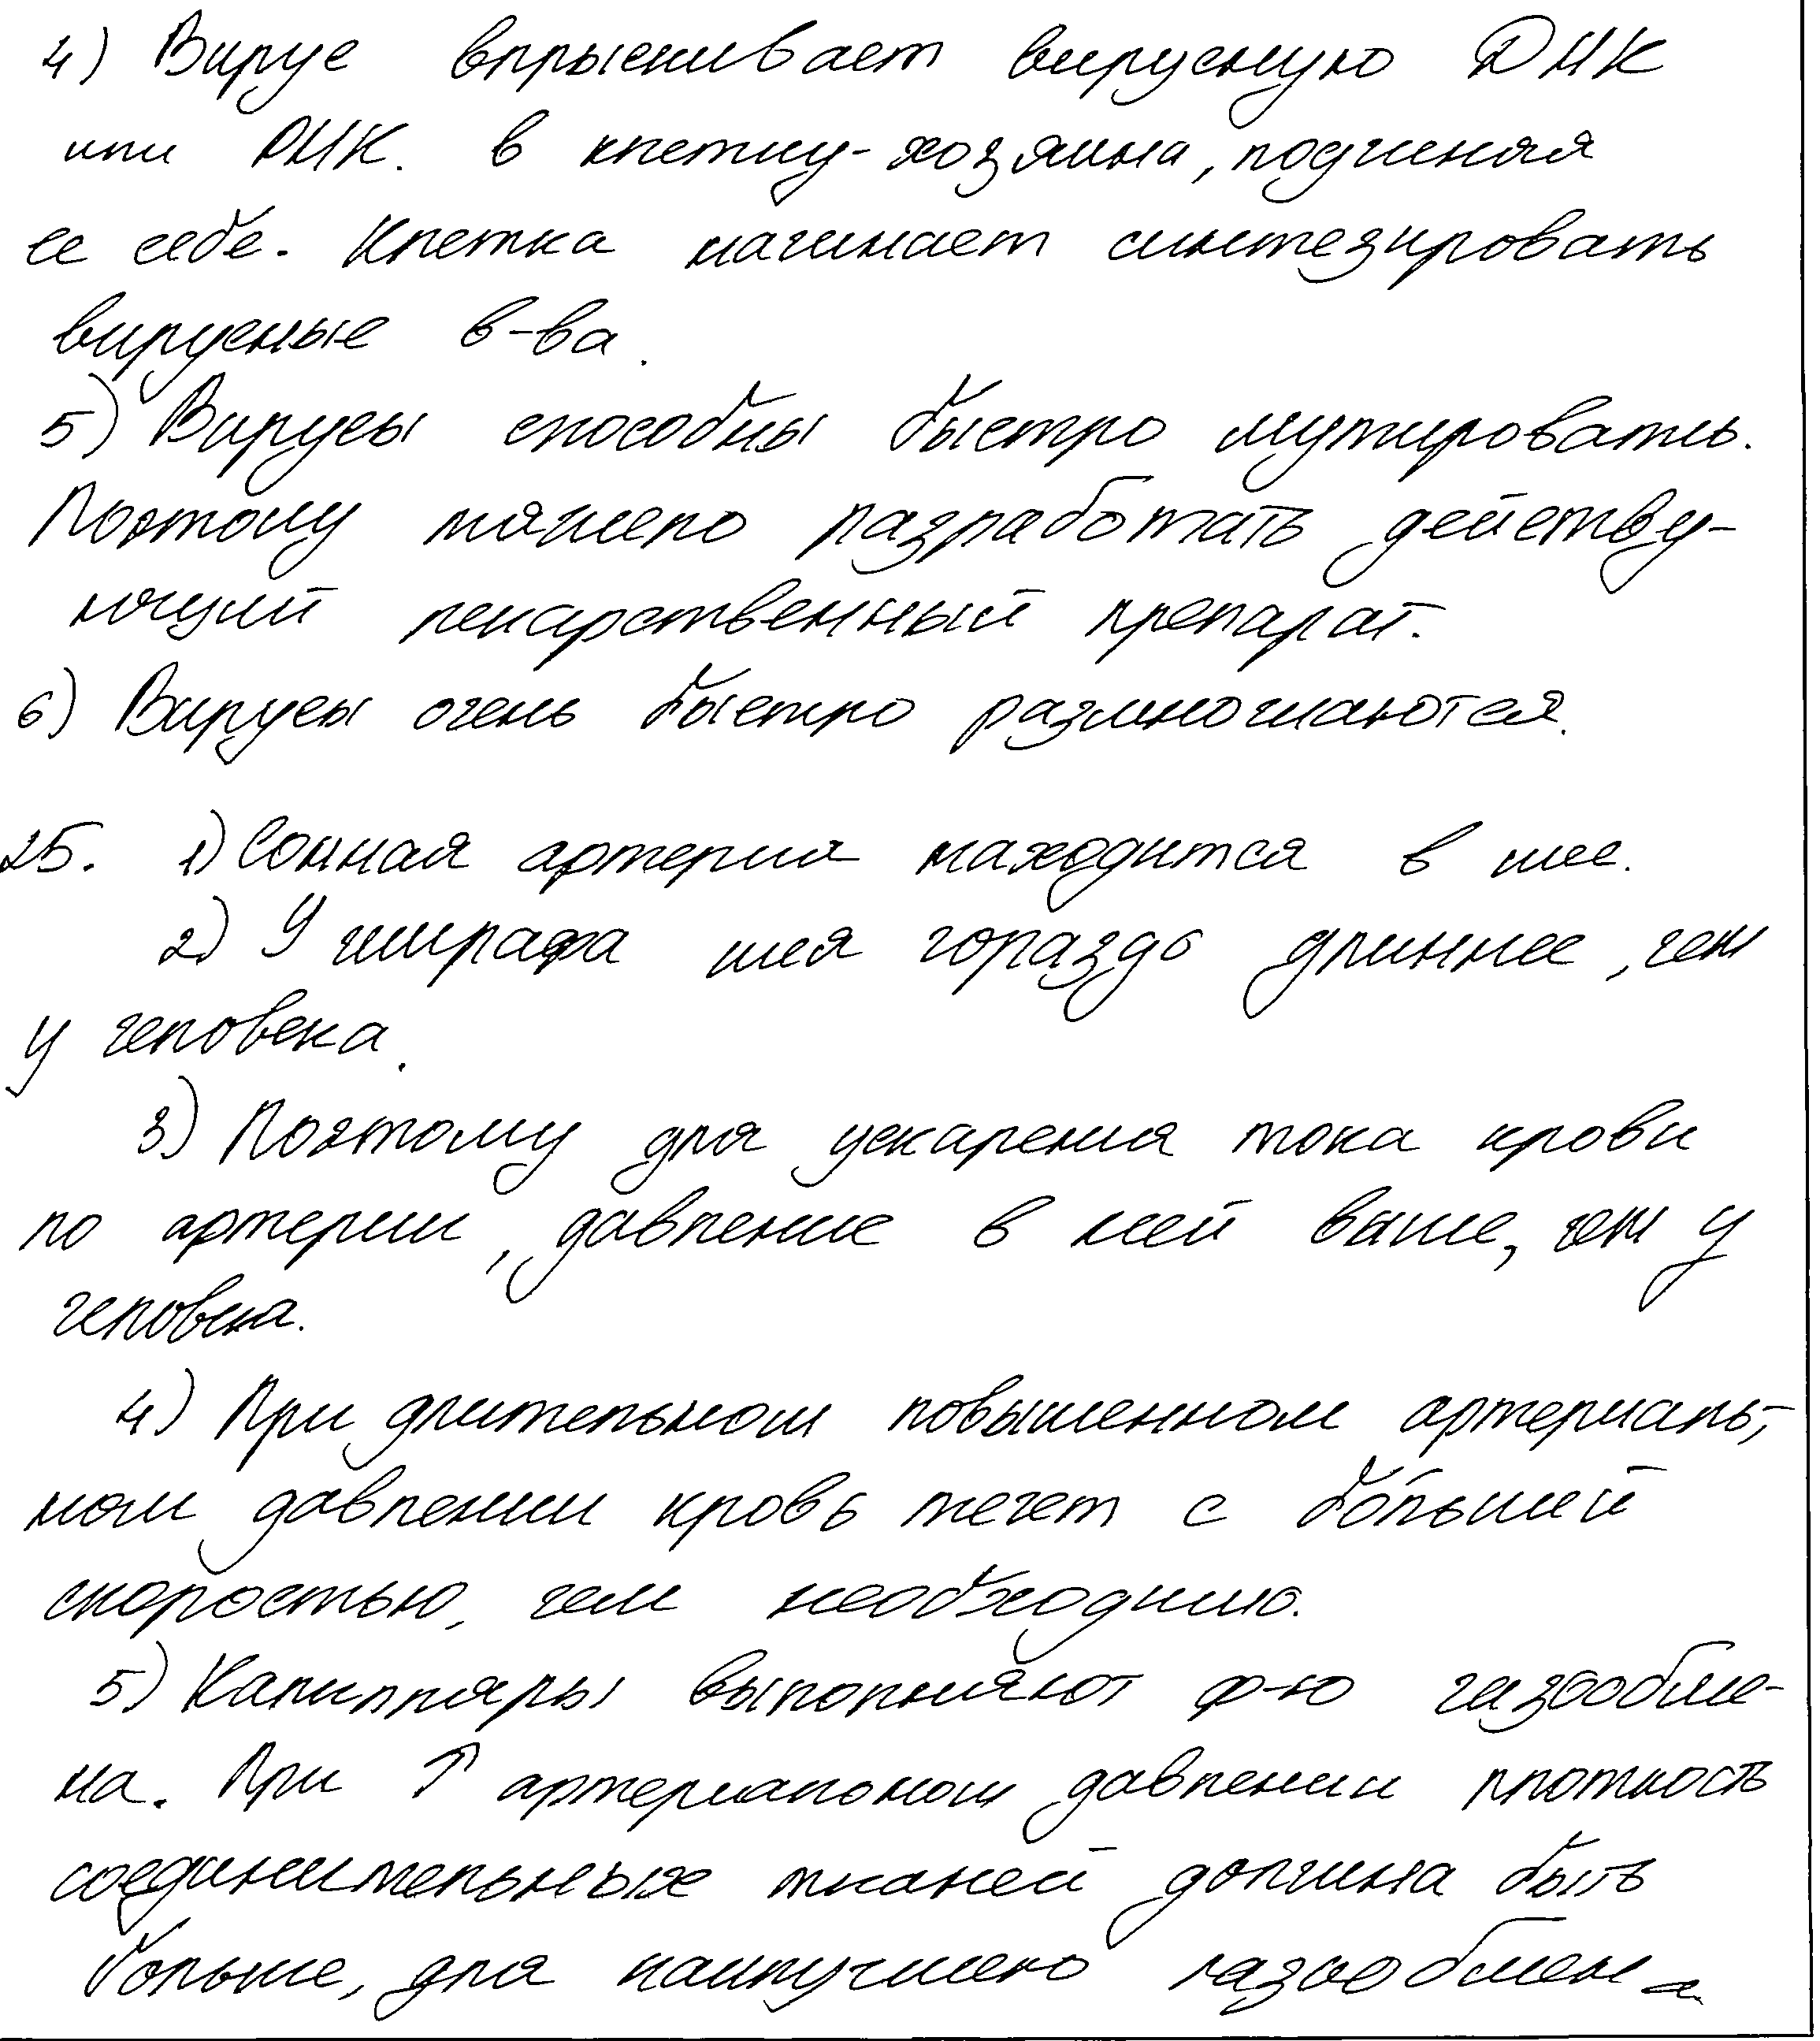 4) Вирус впрыскивает вирусную ДНК
или РНК. в клетку-хозяина, подченяя
ее себе. Клетка начинает синтезировать
вирусные в-ва.
5) Вирусы способны быстро мутировать.
Поэтому тяжело разработать действу-
ющий лекарственный препарат.
6) Вирусы очень быстро размножаются.
25. 1) Сонная артерия находится в шее.
2) У жирафа шея гораздо длиннее, чем
у человека.
3) Поэтому для ускарения тока крови
по артерии, давление в ней выше, чем у
человека.
4) При длительном повышенном артериаль-
ном давлении кровь течет с бо́льшей
скоростью, чем необходимо.
5) Капилляры выполняют ф-ю газообме-
на. При ↑ артериальном давлении плотность
соединительных тканей должна быть
больше, для наилучшего газообмена